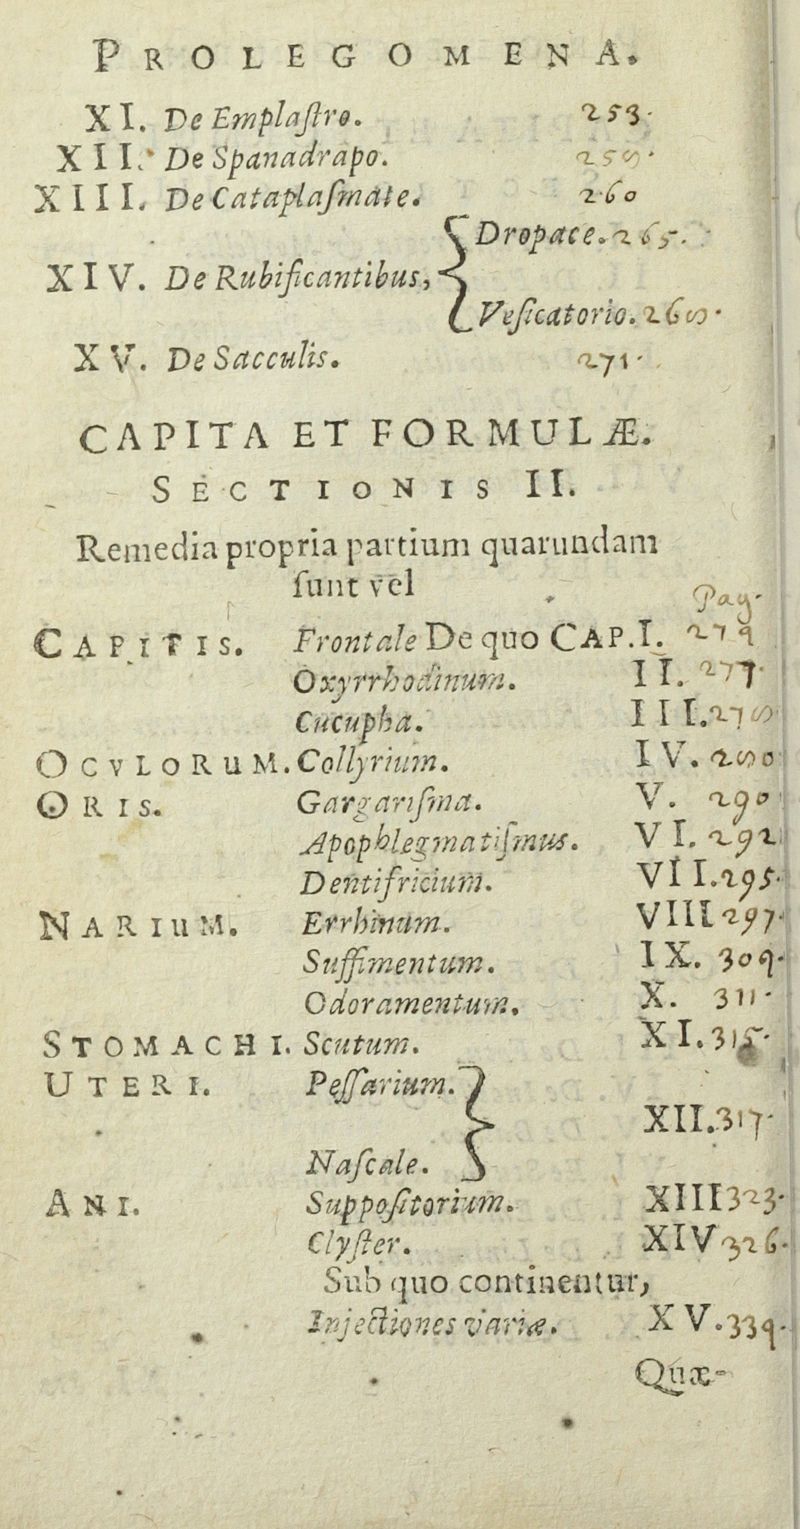 PROLEGOMENA.
XI. De Emplaſtro. 253.
XII. De Spanadrapo. 258.
XIII. De Cataplaſmate. 260
Dropace. 265.
XIV. De Rubificantibus,
Veſicatorio. 268.
XV. De Sacculis. 271.
CAPITA ET FORMULÆ.
SECTIONIS II.
Remedia propria partium quarundam
ſunt vel
Pag.
CAPITIS. Frontale De quo CAP. I. 274
Oxyrrhodinum. II. 277.
Cucupha. III. 278
OCVLORUM. Collyrium. IV. 280
ORIS. Gargariſma. V. 290
Apophlegmatiſmus. VI. 292
Dentifricium. VII. 295.
NARIUM. Errhinum. VIII 297.
Suffimentum. IX. 304.
Odoramentum. X. 311.
STOMACHI. Scutum. XI. 315.
UTERI. Peſſarium.
XII. 317.
Naſcale.
ANI. Suppoſitorium. XIII 323.
Clyſter. XIV 326.
Sub quo continentur,
Injectiones variæ. XV. 334.
Quæ-